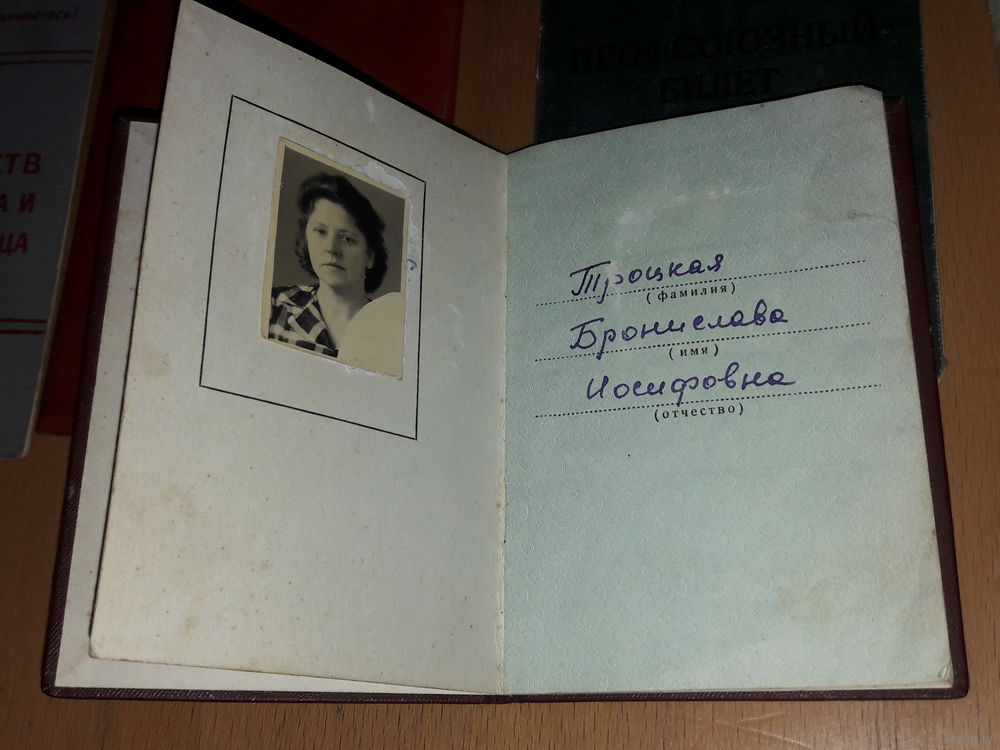 СТВ
А И
ЦА
ПРОФСОЮЗНЫЙ
БИЛЕТ
Троцкая
(фамилия)
Бронислава
(имя)
Иосифовна
(отчество)